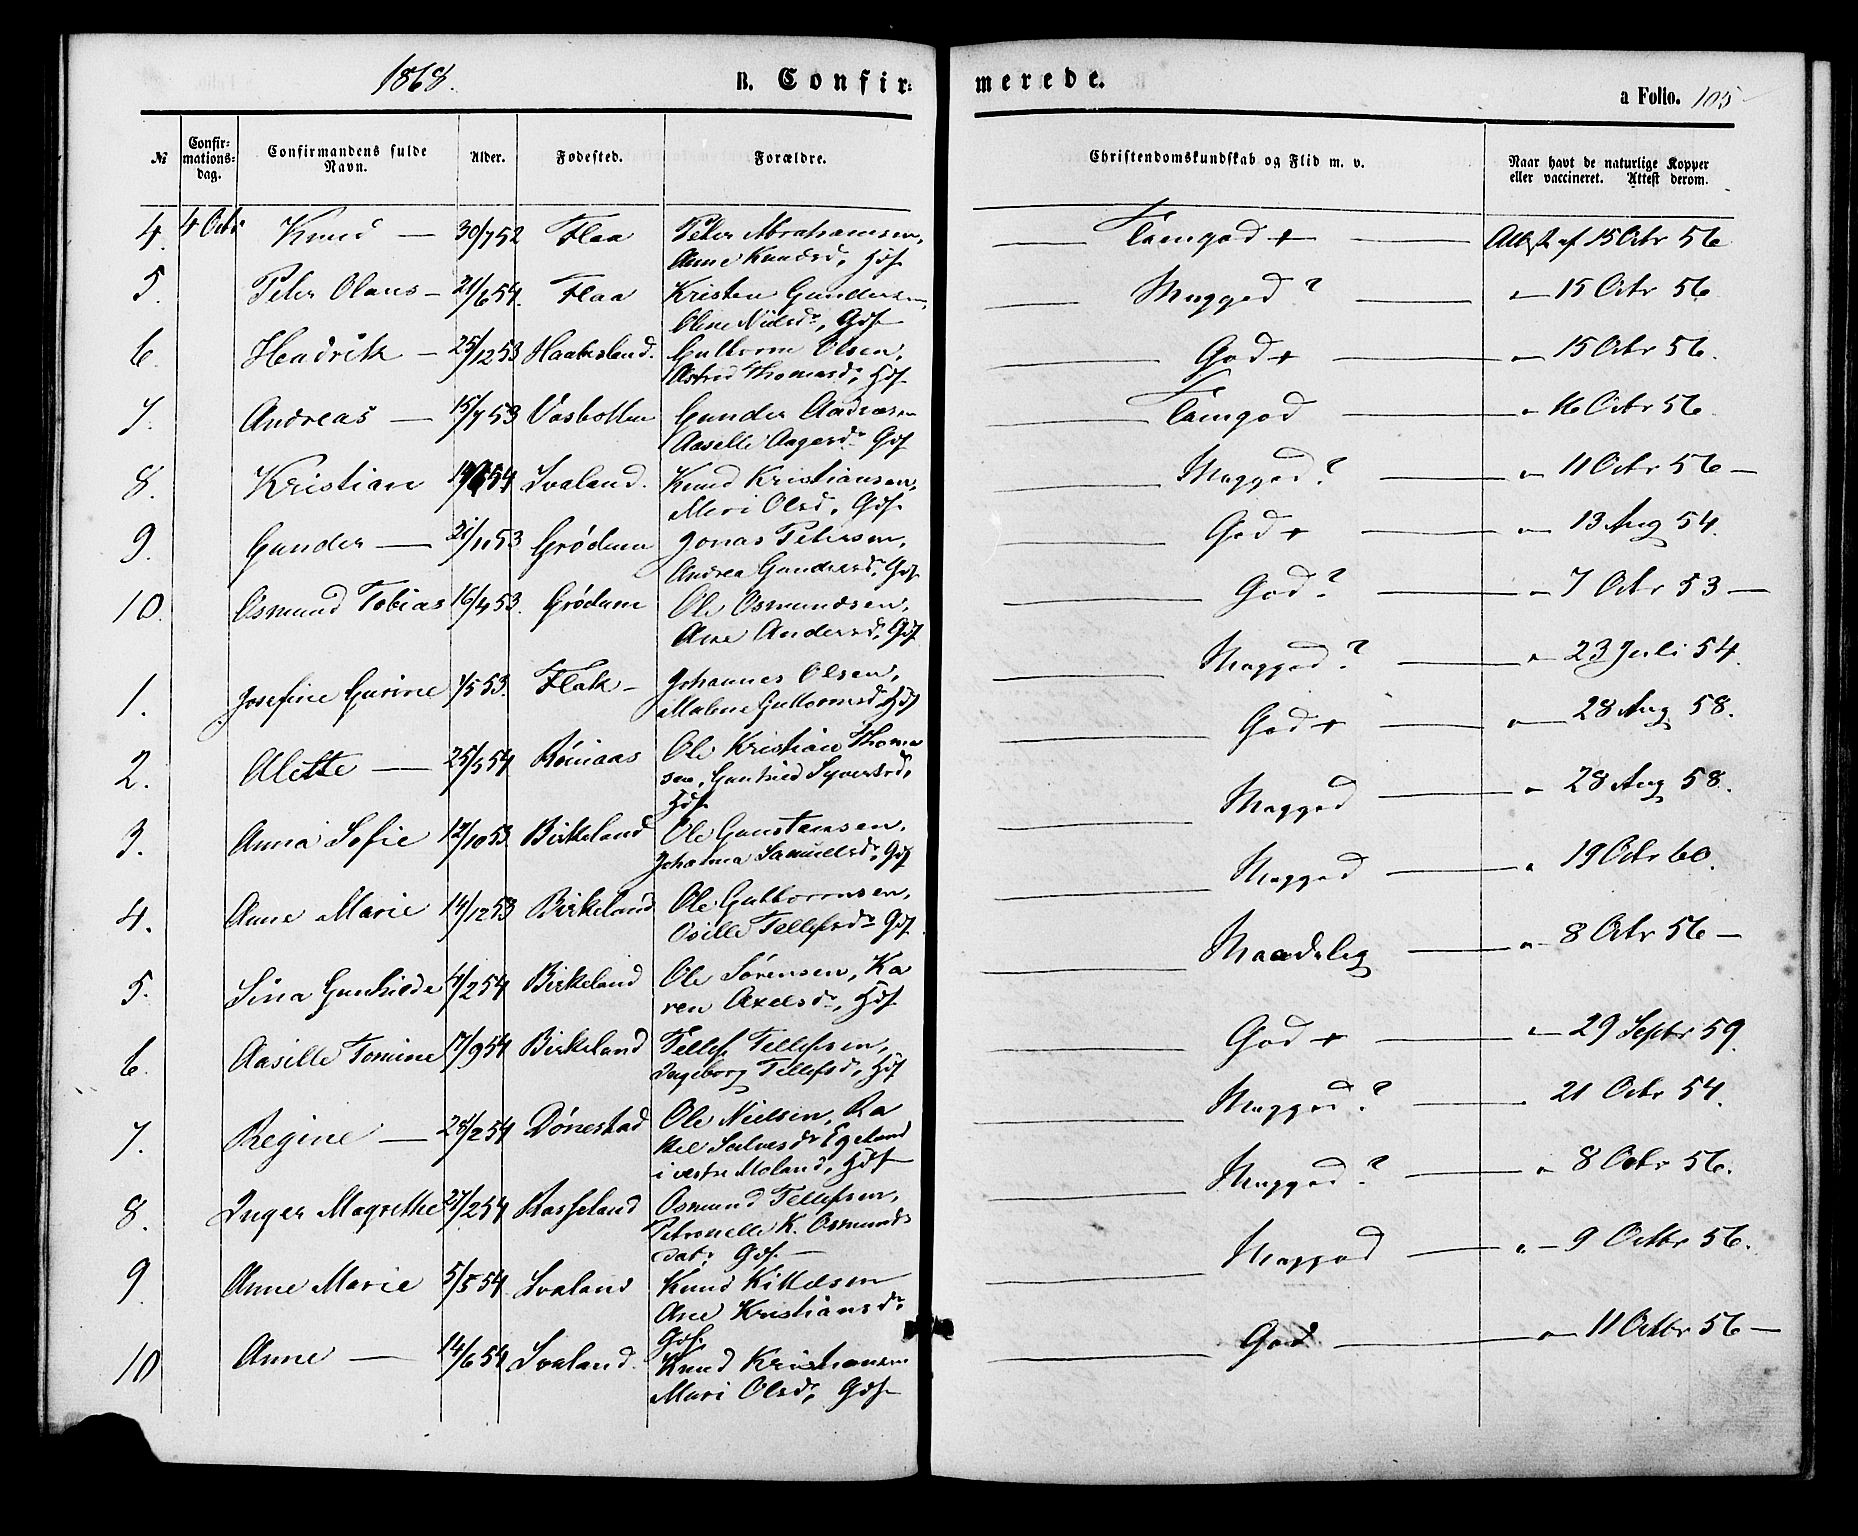 1868.
B. Confirmerede.
a Folio. 105
№ Confirmations-dag. Confirmandens fulde Navn. Alder. Fødested. Forældre. Christendomskundskab og Flid m. v. Naar havt de naturlige Kopper eller vaccineret. Attest derom.
4. 4 Octr Knud — 30/7 52 Flaa Peter Abrahamsen, Anne Knudsd., Hdf. Tæmgod + Attest af 15 Octr 56
5. Peter Olaus — 21/6 54. Flaa Kristen Gundersen, Oline Nielsdr, Gdf. Megged? " 15 Octr 56
6. Hendrik — 25/12 53 Haabesland. Guttorm Olsen, Astrid Thomasdr, Hdf. God + " 15 Octr 56.
7. Andreas — 15/7 53 Vasbotten Gunder Andræsen Aaselle Aagesdr Gdf Tæmgod " 16 Octr 56.
8. Kristian 54 Svaland. Knud Kristiansen, Mari Olsdr, Gdf. Megged? " 11 Octr 56 —
9. Gunder — 21/11 53 Grødum Jonas Petersen, Andrea Gundersdr, Gdf. God + " 13 Aug 54.
10. Osmund Tobias 16/4 53. Grødum Ole Osmundsen, Ane Andersdr, Gdf God? " 7 Octr 53 —
1. Josefine Gurine 1/5 53. Flak — Johannes Olsen, Malene Guttormsd. Hdf Megged? " 23 Juli 54.
2. Alette — 25/5 54 Røinaas Ole Kristian Thomasen, Gunhild Syvertsdr, Hdf. God + " 28 Aug 58.
3. Anna Sofie 12/10 53 Birkeland Ole Gunstensen, Johanna Samuelsdr, Gdf Megged " 28 Aug 58.
4. Anne Marie 14/12 53 Birkeland Ole Guttormsen, Osille Tellefsdr Gdf. Megged " 19 Octr 60.
5. Sina Gunhilde 4/2 54 Birkeland Ole Sørensen, Karen Axelsdr, Hdf. Maadelig " 8 Octr 56 —
6. Aasille Tomine 17/9 54 Birkeland Tellef Tellefsen, Ingeborg Tellefsd., Hdf God + " 29 Septr 59.
7. Regine — 28/2 54 Dønestad Ole Nielsen, Rakel Salvesdr Egeland i vestre Moland, Hdf — Megged? " 21 Octr 54.
8. Inger Magrethe 27/2 54 Rosseland Osmund Tellefsen, Petronelle K. Osmundsdatr Gdf. — Megged? " 8 Octr 56.
9. Anne Marie 5/5 54 Svaland Knud Kittelsen Ane Kristiansdr Gdf. Megged " 9 Octbr 56.
10 Anne — 14/6 54 Svaland. Knud Kristiansen Mari Olsdr, Gdf — God " 11 Octbr 56 —